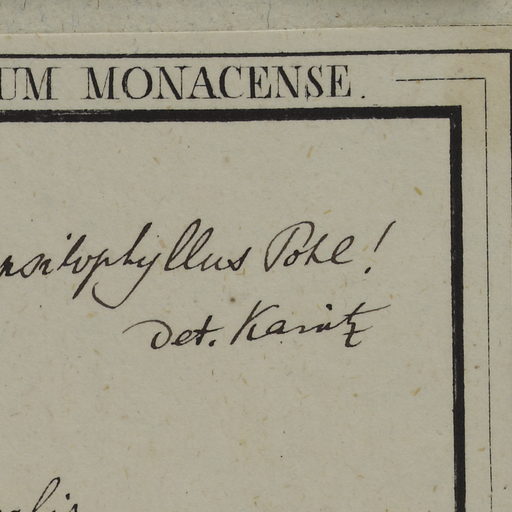 UM MONACENSE.
ensilophyllus Pohl!
Det. Kanitz